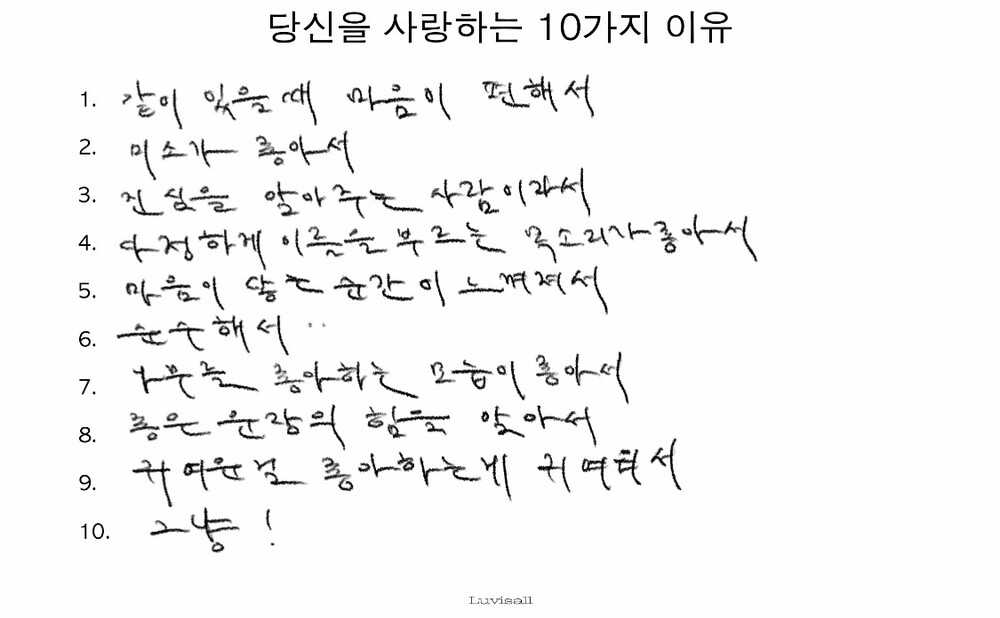 당신을 사랑하는 10가지 이유
1. 같이 있을때 마음이 편해서
2. 미소가 좋아서
3. 진심을 알아주는 사람이라서
4. 다정하게 이름을 부르는 목소리가 좋아서
5. 마음이 닿는 순간이 느껴져서
6. 순수해서 ..
7. 나무를 좋아하는 모습이 좋아서
8. 좋은 문장의 힘을 알아서
9. 귀여운걸 좋아하는게 귀여워서
10. 그냥!
Luvisall